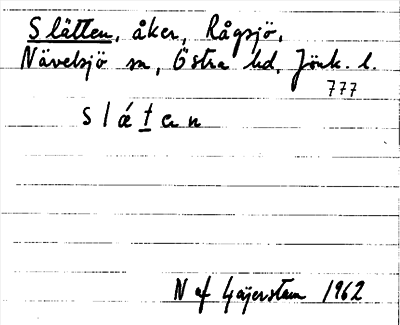 Slätten, åker, Rågsjö,
Nävelsjö sn, Östra hd, Jönk. l.
777
slá̈ten
N af Geijerstam 1962